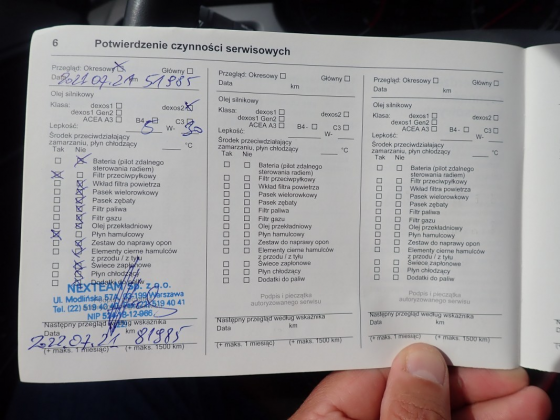 6 Potwierdzenie czynności serwisowych
Przegląd: Okresowy Główny
Data 2021.07.21 km 51985
Olej silnikowy
Klasa: dexos1 dexos2
dexos1 Gen2
ACEA A3 B4- C3
Lepkość: 5 W- 30
Środek przeciwdziałający
zamarzaniu, płyn chłodzący °C
Tak Nie
Bateria (pilot zdalnego
sterowania radiem)
Filtr przeciwpyłkowy
Wkład filtra powietrza
Pasek wielorowkowy
Pasek zębaty
Filtr paliwa
Filtr gazu
Olej przekładniowy
Płyn hamulcowy
Zestaw do naprawy opon
Elementy cierne hamulców
z przodu / z tyłu
Świece zapłonowe
Płyn chłodzący
NEXTEAM Sp. z o.o.
Ul. Modlińska Warszawa
Następny przegląd według wskaźnika
Data km
2022.07.21 81985
(+ maks. 1 miesiąc) (+ maks. 1500 km)
Przegląd: Okresowy Główny
Data km
Olej silnikowy
Klasa: dexos1 dexos2
dexos1 Gen2
ACEA A3 B4- C3
Lepkość: W-
Środek przeciwdziałający
zamarzaniu, płyn chłodzący °C
Tak Nie
Bateria (pilot zdalnego
sterowania radiem)
Filtr przeciwpyłkowy
Wkład filtra powietrza
Pasek wielorowkowy
Pasek zębaty
Filtr paliwa
Filtr gazu
Olej przekładniowy
Płyn hamulcowy
Zestaw do naprawy opon
Elementy cierne hamulców
z przodu / z tyłu
Świece zapłonowe
Płyn chłodzący
Dodatki do paliw
Podpis i pieczątka
autoryzowanego serwisu
Następny przegląd według wskaźnika
Data km
(+ maks. 1 miesiąc) (+ maks. 1500 km)
Przegląd: Okresowy Główny
Data km
Olej silnikowy
Klasa: dexos1 dexos2
dexos1 Gen2
ACEA A3 B4- C3
Lepkość: W-
Środek przeciwdziałający
zamarzaniu, płyn chłodzący °C
Tak Nie
Bateria (pilot zdalnego
sterowania radiem)
Filtr przeciwpyłkowy
Wkład filtra powietrza
Pasek wielorowkowy
Pasek zębaty
Filtr paliwa
Filtr gazu
Olej przekładniowy
Płyn hamulcowy
Zestaw do naprawy opon
Elementy cierne hamulców
z przodu / z tyłu
Świece zapłonowe
Płyn chłodzący
Dodatki do paliw
Podpis i pieczątka
autoryzowanego serwisu
Następny przegląd według wskaźnika
Data km
(+ maks. 1 miesiąc) (+ maks. 1500 km)